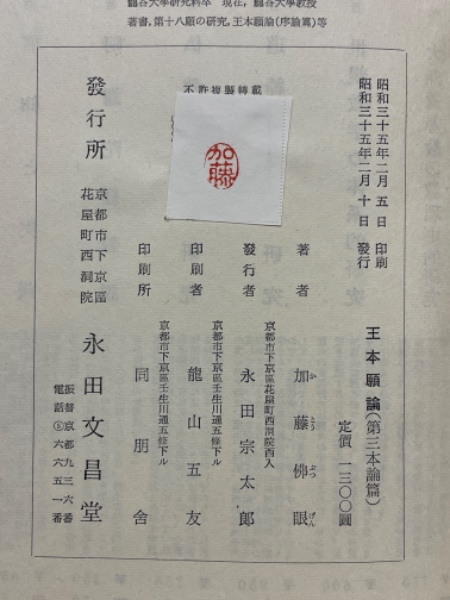 龍谷大學研究科卒 現在，龍谷大學教授
著書，第十八願の研究，王本願論（序論篇）等
不許複製轉載
加藤
昭和三十五年二月五日 印刷
昭和三十五年二月十日 發行
王本願論（第三本論篇）
定價 一三〇〇圓
著者 加藤佛眼
か とう ぶつ げん
京都市下京區花屋町西洞院西入
發行者 永田宗太郎
京都市下京區壬生川通五條下ル
印刷者 龍山五友
京都市下京區壬生川通五條下ル
印刷所 同朋舍
發行所
京都市下京區
花屋町西洞院
永田文昌堂
振替京都九三六番
電話⑤六六五一番